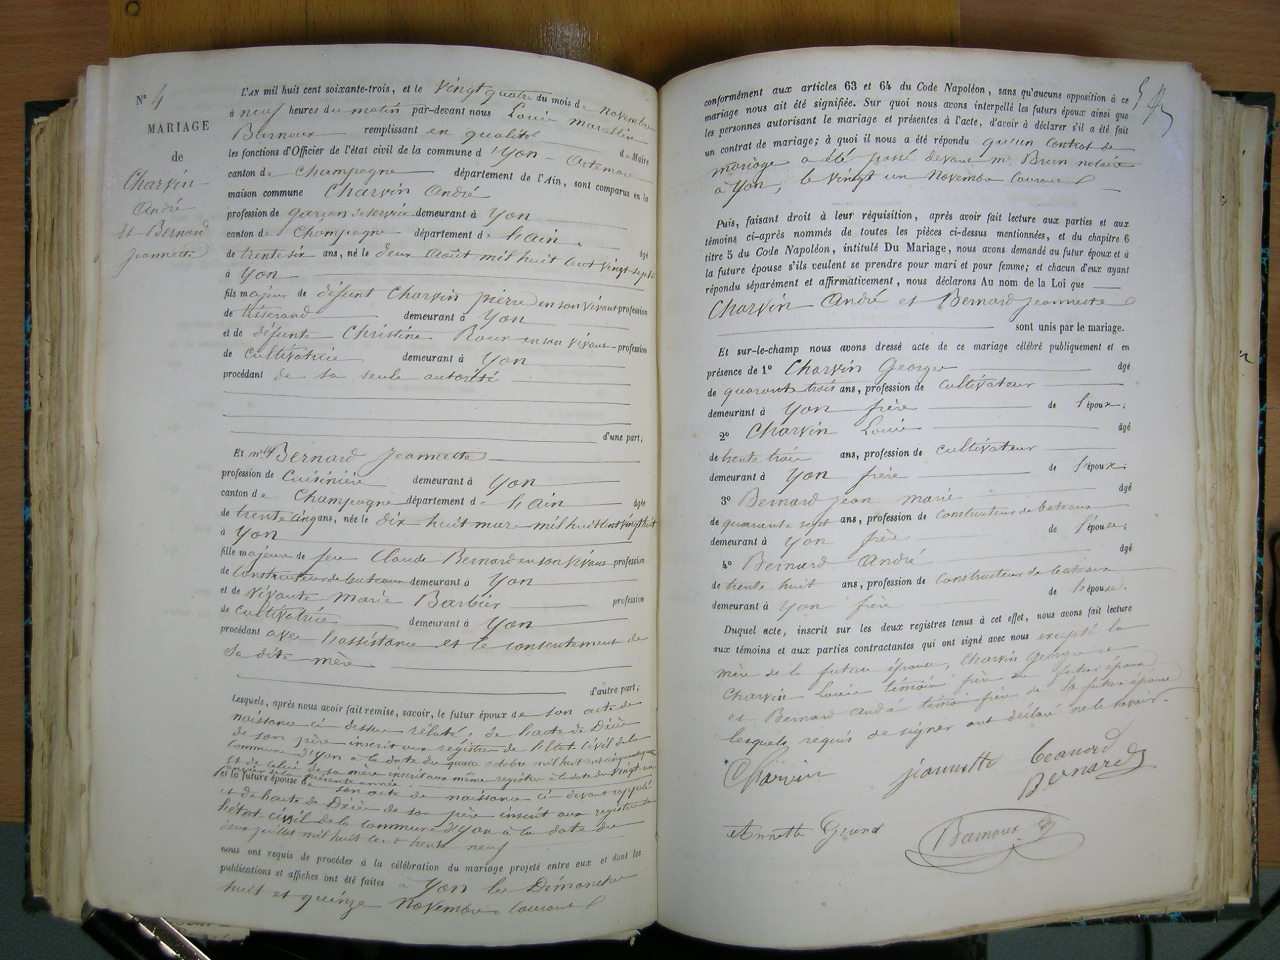 N° 4
MARIAGE
de
Charvin
André
et Bernard
jeannette
L'AN mil huit cent soixante-trois, et le vingt quatre du mois de novembre
à neuf heures du matin par-devant nous Louis marcellin
Barnoux remplissant en qualité de Maire
les fonctions d'Officier de l'état civil de la commune d'Yon - Artemare
canton de Champagne département de l'Ain, sont comparus en la
maison commune Charvin André
profession de garçon de service demeurant à Yon
canton de Champagne département de l'ain. âgé
de trente six ans, né le deux Août mil huit cent vingt sept
à Yon
fils majeur de défunt Charvin pierre en son vivant profession
de tisserand demeurant à Yon
et de défunte Christine Roux en son vivant profession
de cultivatrice demeurant à Yon
procédant de sa seule autorité
d'une part;
Et mlle Bernard jeannette
profession de Cuisinière demeurant à Yon
canton de Champagne département de l'ain âgée
de trente cinq ans, née le dix huit mars mil huit cent vingt huit
à Yon
fille majeure de feu Claude Bernard en son vivant profession
de constructeur de bateaux demeurant à Yon
et de vivante marie Barbier profession
de cultivatrice demeurant à Yon
procédant avec l'assistance et le consentement de
sa dite mère
d'autre part;
Lesquels, après nous avoir fait remise, savoir, le futur époux de son acte de
naissance ci dessus relaté, de l'acte de Décès
de son père inscrit aux registres de l'état civil de la
commune d'Yon à la date du quatre octobre mil huit cent
et de celui de sa mère inscrit aux même registres à la date du vingt
et la future épouse de son acte de naissance ci devant rappelé
et de l'acte de Décès de son père inscrit aux registres de
l'état civil de la commune d'Yon à la date du
deux juillet mil huit cent trente neuf
nous ont requis de procéder à la célébration du mariage projeté entre eux et dont les
publications et affiches ont été faites à Yon les Dimanches
huit et quinze novembre courant
conformément aux articles 63 et 64 du Code Napoléon, sans qu'aucune opposition à ce
mariage nous ait été signifiée. Sur quoi nous avons interpellé les futurs époux ainsi que
les personnes autorisant le mariage et présentes à l'acte, d'avoir à déclarer s'il a été fait
un contrat de mariage; à quoi il nous a été répondu qu'un contrat de
mariage a été passé devant me Brun notaire
à Yon, le vingt un novembre courant
Puis, faisant droit à leur réquisition, après avoir fait lecture aux parties et aux
témoins ci-après nommés de toutes les pièces ci-dessus mentionnées, et du chapitre 6
titre 5 du Code Napoléon, intitulé Du Mariage, nous avons demandé au futur époux et à
la future épouse s'ils veulent se prendre pour mari et pour femme; et chacun d'eux ayant
répondu séparément et affirmativement, nous déclarons Au nom de la Loi que
Charvin André et Bernard jeannette
sont unis par le mariage.
Et sur-le-champ nous avons dressé acte de ce mariage célébré publiquement et en
présence de 1° Charvin George âgé
de quarante trois ans, profession de cultivateur
demeurant à Yon frère de l'époux;
2° Charvin Louis âgé
de trente trois ans, profession de cultivateur
demeurant à Yon frère de l'époux
3° Bernard jean marie âgé
de quarante sept ans, profession de constructeur de bateaux
demeurant à Yon frère de l'épouse;
4° Bernard André âgé
de trente huit ans, profession de constructeur de bateaux
demeurant à Yon frère de l'épouse.
Duquel acte, inscrit sur les deux registres tenus à cet effet, nous avons fait lecture
aux témoins et aux parties contractantes qui ont signé avec nous excepté la
mère de la future épouse, Charvin George et
Charvin Louis témoins frères du futur époux
et Bernard André témoin frère de la future épouse
lesquels requis de signer ont déclaré ne le savoir.
Charvin jeannette
Bernard
Annette Grand Barnoux